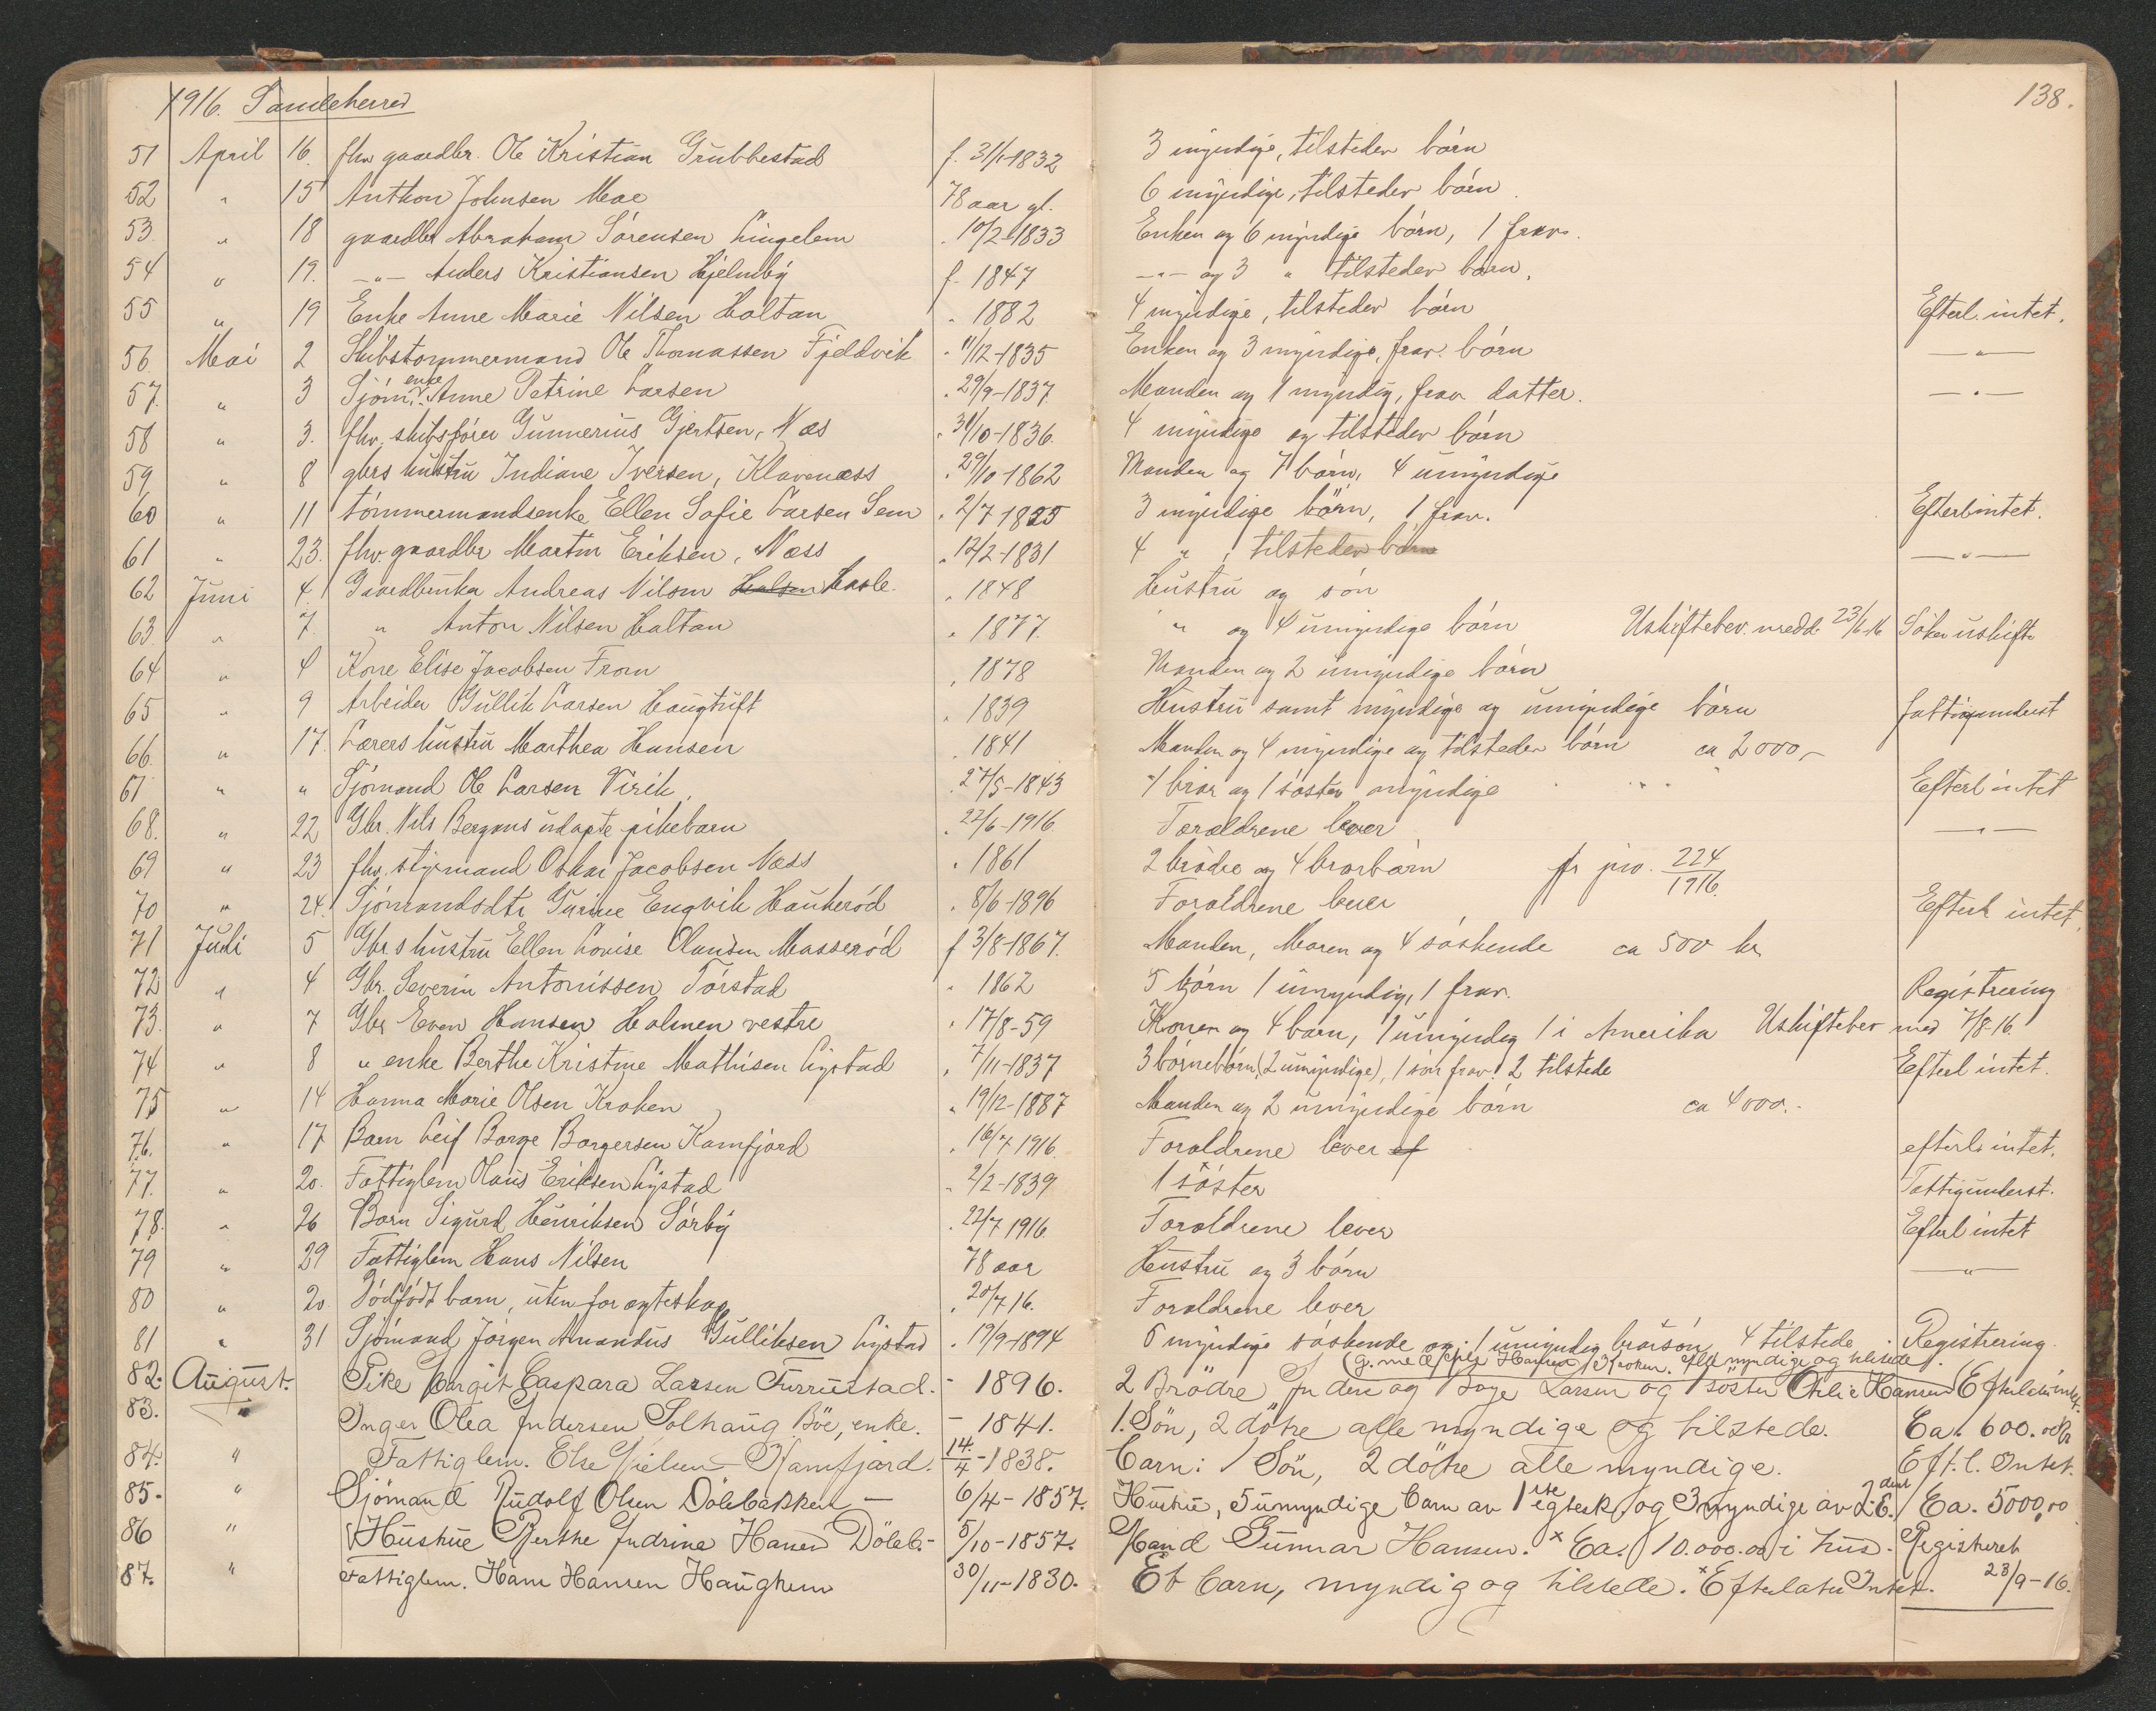 1916. Sandeherred 138.
51 April 16. fhv gaardbr. Ole Kristian Grubbestad f. 31/1-1832 3 myndige, tilstedev børn
52 " 15 Anthon Johnsen Moe 78 aar gl. 6 myndige, tilstedev børn.
53. " 18 gaardbr Abraham Sørensen Lingelem " 10/2-1833 Enken og 6 myndige børn, 1 frav.
54 " 19. -"- Anders Kristiansen Hjelmby f. 1847 -"- og 3 " tilstedev børn.
55 " 19 Enke Anne Marie Nilsen Holtan " 1882 4 myndige, tilstedev børn Efterl. intet.
56. Mai 2 Skibstømmermand Ole Thomassen Fjeldvik " 11/12-1835 Enken og 3 myndige, frav. børn -"-
57. " 3 Sjøm. enke Anne Petrine Larsen " 29/9-1837. Manden og 1 myndig, frav. datter. -"-
58 " 3. fhv. skibsfører Gunnerius Gjertsen, Næs " 31/10-1836. 4 myndige og tilstedev børn
59 " 8 gbrs hustru Indiane Iversen, Klavenæss " 29/10-1862 Manden og 7 børn, 4 umyndige
60 " 11 tømmermandsenke Ellen Sofie Larsen Sem " 2/7 1825 3 myndige børn, 1 frav. Efterl intet.
61 " 23. fhv. gaardbr Martin Eriksen, Næss " 12/2-1831 4 " , tilstedev børn -"-
62 Juni 4. Gaardbruker Andreas Nilsen Hasle " 1848 Hustru og søn
63. " 7. " Anton Nilsen Haltan " 1877. " og 4 umyndige børn Uskiftebev. medd. 23/6-16 Søker uskifte
64 " 4 Kone Elise Jacobsen From " 1878 Manden og 2 umyndige børn
65 " 9 Arbeider Gullik Larsen Haugtuft " 1839 Hustru samt myndige og umyndige børn fattigunderst
66. " 17. Lærers hustru Marthea Hansen " 1841 Manden og 4 myndige og tilstedev børn ca 2000,-
67 " " Sjømand Ole Larsen Virik. " 27/5-1843 1 bror og 1 søster myndige Efterl intet
68. " 22 Gbr. Nils Bergans udøpte pikebarn " 22/6-1916 Forældrene lever -"-
69 " 23 fhv. styrmand Oskar Jacobsen Næss " 1861 2 brødre og 4 brorbørn fr pro. 224/1916.
70 " 24. Sjømandsdtr Gurine Engvik Haukerød " 8/6-1896 Forældrene lever Efterl intet.
71 Juli 5 Gbrs hustru Ellen Lovise Olausen Masserød f 3/8-1867. Manden, Moren og 4 søskende ca 500 kr
72 " 4 Gbr. Severin Antonissen Tørstad " 1862 5 børn 1 umyndig, 1 frav. Registrering
73. " 7 Gbr Even Hansen Holmen vestre " 17/8-59 Konen og 4 barn, 1 umyndig 1 i Amerika Uskiftebev med 7/8-16.
74 " 8 " enke Berthe Kristine Mathisen Lystad " 7/11-1837 3 børnebørn, (2 umyndige), 1 søn frav. 2 tilstede Efterl intet.
75 " 14 Hanna Marie Olsen Kroken " 19/12-1887 Manden og 2 umyndige børn ca 4000.-
76. " 17 Barn Leif Borge Borgersen Kamfjord " 16/7 1916. Forældrene lever ef efterl. intet.
77. " 20. Fattiglem Olaus Eriksen Lystad " 2/2-1839 1 søster Fattigunderst.
78. " 26 Barn Sigurd Henriksen Sørby " 22/7 1916. Forældrene lever Efterl intet
79 " 29 Fattiglem Hans Nilsen 78 aar Hustru og 3 børn -"-
80 " 20. Dødfødt barn, uten for ægteskap " 20/7 16. Forældrene lever
81 " 31 Sjømand Jørgen Amandus Gulliksen Lystad " 19/9-1894 6 myndige søskende og 1 umyndig brorsøn 4 tilstede. Registrering.
82. August. Pike Borgit Caspara Larsen Furrustad. - 1896. 2 Brødre og Boye Larsen og 1 søster Othilie Hansen Efterlader intet.
myndige og tilstede
83. " Inger Olea Andersen Solhaug Bøe, enke. - 1841. 1. Søn, 2 døtre alle myndige og tilstede. Ca. 600. Kr
84. " Fattiglem. Else Nielsen - Kamfjord. 14./4-1838. Barn: 1 Søn, 2 døtre alle myndige. Eft. l. Intet.
85. " Sjømand Rudolf Olsen Dölebakken - 6/4-1857. Hustru, 5 umyndige barn av 1ste egtesk. og 3 myndige av 2det E. Ca. 5000,00
86 " Hustrue Berthe Andrine Hansen Döleb.- 5/10-1857. Mand Gunnar Hansen. x Ca. 10.000.00 i hus. Registreret
87. " Fattiglem. Hans Hansen Haughem 30/11-1830. Et barn, myndig og tilstede. x Efterlater Intet. 23/9-16.